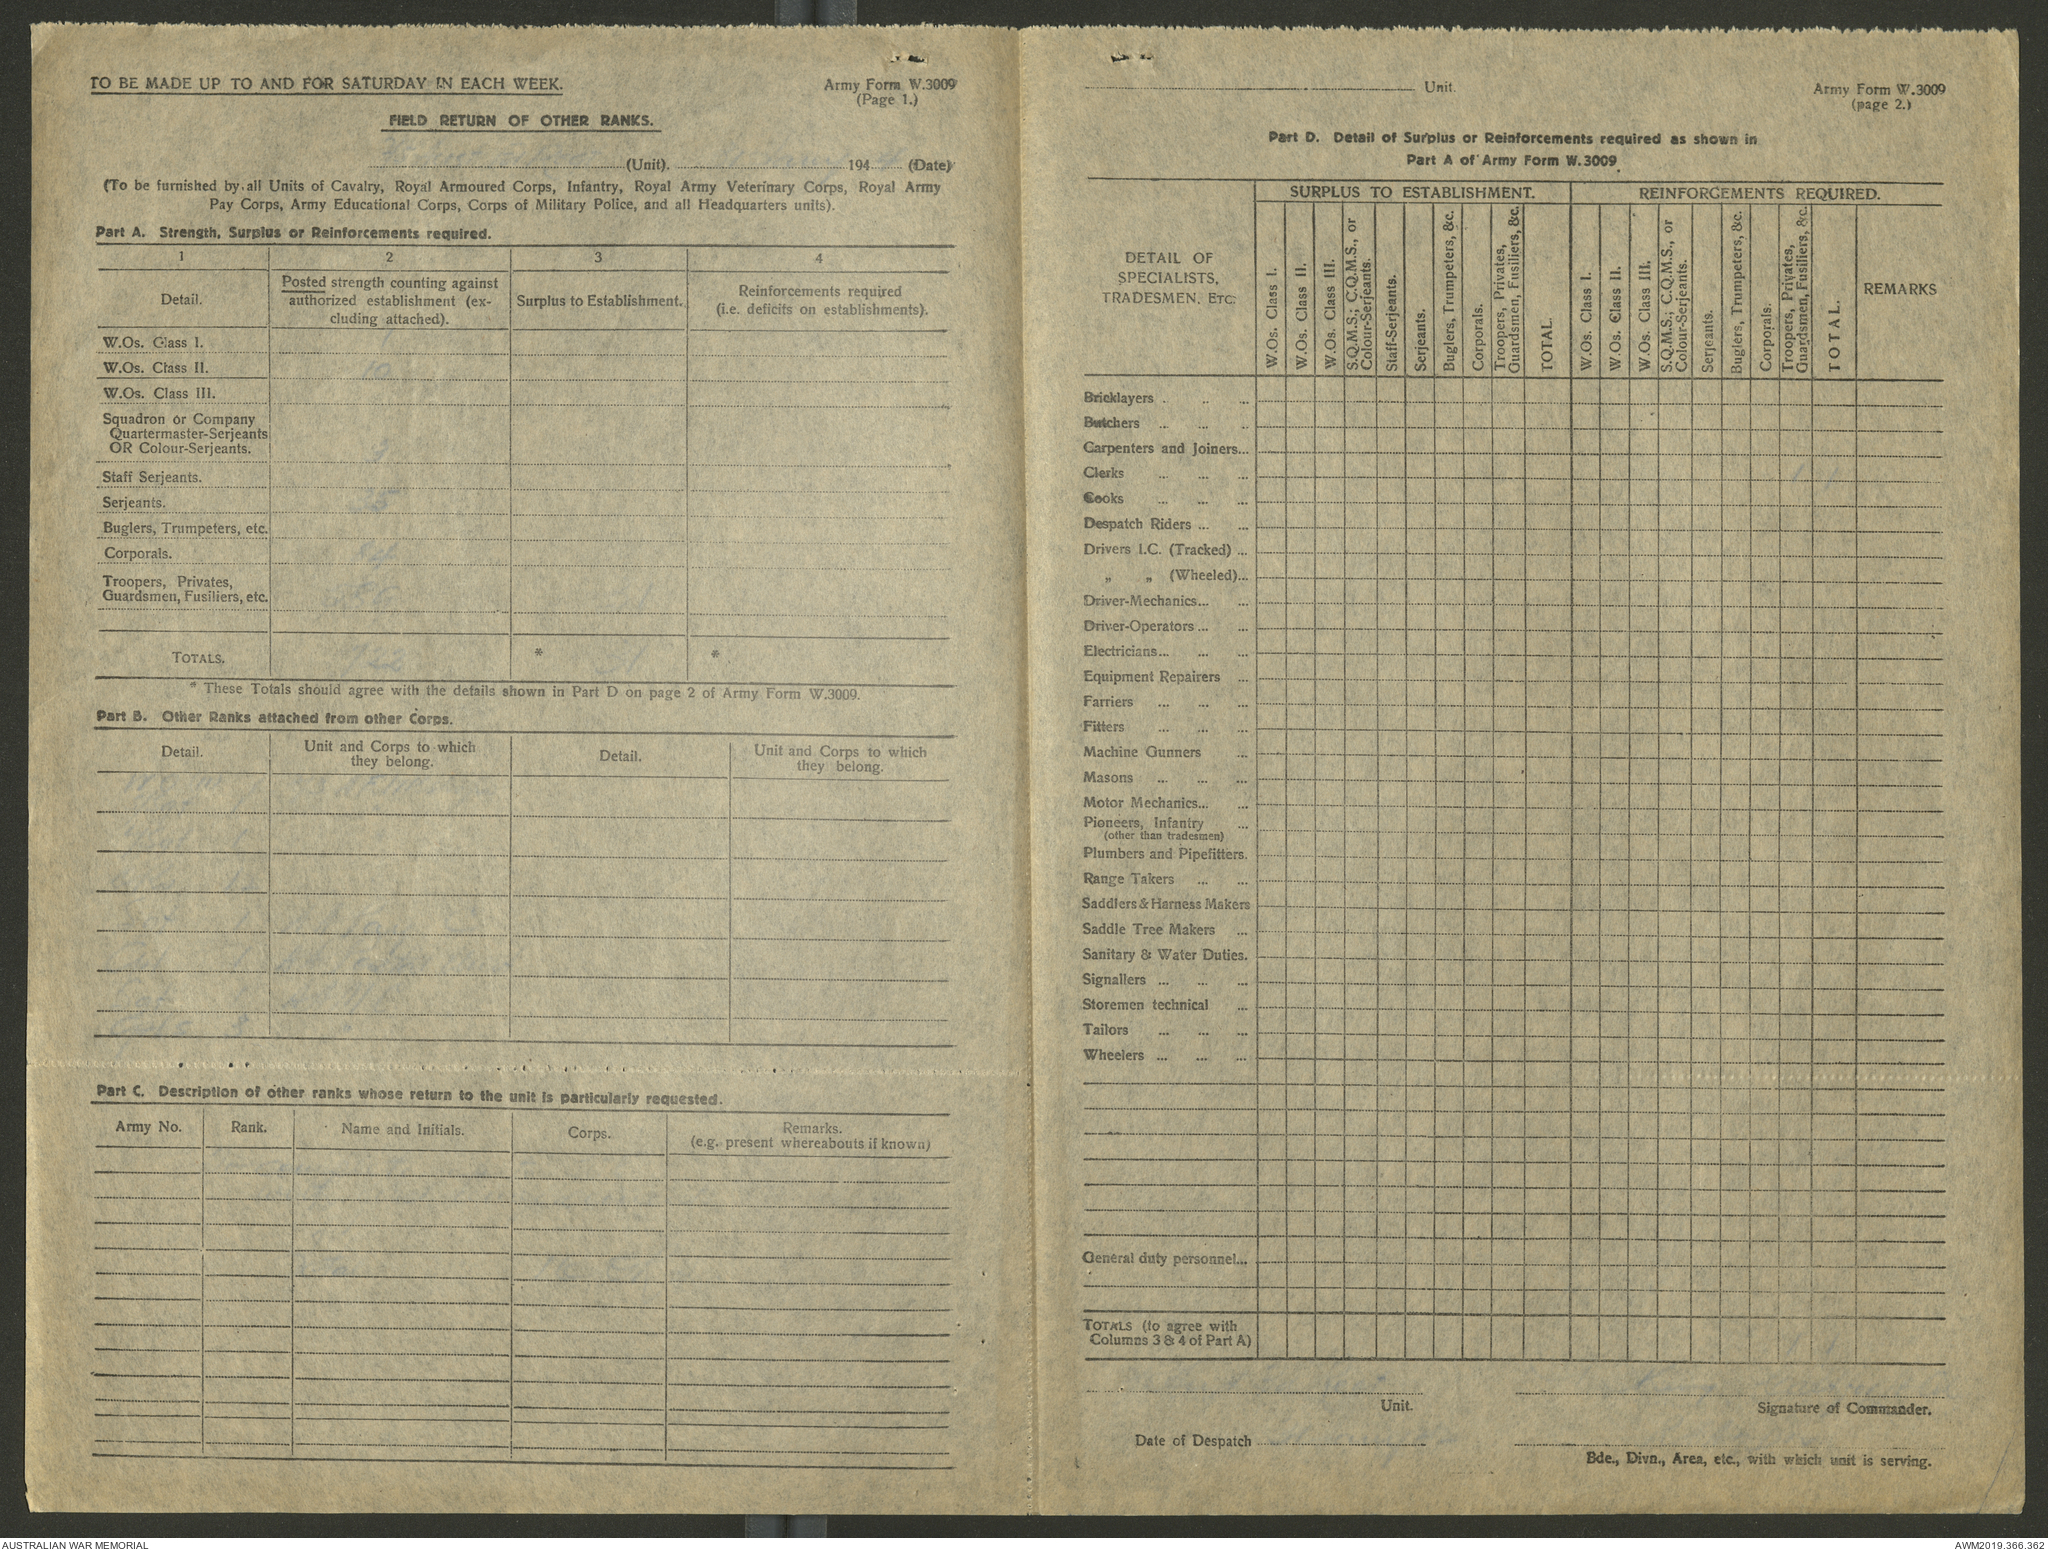 TO BE MADE UP TO AND FOR SATURDAY IN EACH WEEK.
Army Form W.3009
(Page 1.)
FIELD RETURN OF OTHER RANKS.
(Unit). 194 (Date)
(To be furnished by all Units of Cavalry, Royal Armoured Corps, Infantry, Royal Army Veterinary Corps, Royal Army
Pay Corps, Army Educational Corps, Corps of Military Police, and all Headquarters units).
Part A. Strength, Surplus or Reinforcements required.
1 2 3 4
Detail.
Posted strength counting against
authorized establishment (ex-
cluding attached).
Surplus to Establishment.
Reinforcements required
(i.e. deficits on establishments).
W.Os. Class I.
W.Os. Class II. 10
W.Os. Class III.
Squadron or Company
Quartermaster-Serjeants
OR Colour-Serjeants.
Staff Serjeants.
Serjeants.
Buglers, Trumpeters, etc.
Corporals.
Troopers, Privates,
Guardsmen, Fusiliers, etc.
TOTALS. * *
* These Totals should agree with the details shown in Part D on page 2 of Army Form W.3009.
Part B. Other Ranks attached from other Corps.
Detail.
Unit and Corps to which
they belong.
Detail.
Unit and Corps to which
they belong.
Part C. Description of other ranks whose return to the unit is particularly requested.
Army No. Rank. Name and Initials. Corps.
Remarks.
(e.g. present whereabouts if known)
Unit.
Army Form W.3009
(page 2.)
Part D. Detail of Surplus or Reinforcements required as shown in
Part A of Army Form W.3009
DETAIL OF
SPECIALISTS,
TRADESMEN, ETC.
SURPLUS TO ESTABLISHMENT.
W.Os. Class I.
W.Os. Class II.
W.Os. Class III.
S.Q.M.S.; C.Q.M.S., or
Colour-Serjeants.
Staff-Serjeants.
Serjeants.
Buglers, Trumpeters, &c.
Corporals.
Troopers, Privates,
Guardsmen, Fusiliers, &c.
TOTAL.
REINFORCEMENTS REQUIRED.
W.Os. Class I.
W.Os. Class II.
W.Os. Class III.
S.Q.M.S.; C.Q.M.S., or
Colour-Serjeants.
Serjeants.
Buglers, Trumpeters, &c.
Corporals.
Troopers, Privates,
Guardsmen, Fusiliers, &c.
TOTAL.
REMARKS
Bricklayers . .. ...
Butchers ... ... ..
Carpenters and Joiners...
Clerks ... ... ... 1 1
Cooks ... ... ...
Despatch Riders ... ...
Drivers I.C. (Tracked) ...
„ „ (Wheeled)...
Driver-Mechanics... ...
Driver-Operators ... ...
Electricians... ... ...
Equipment Repairers ...
Farriers ... ... ...
Fitters ... ... ...
Machine Gunners ...
Masons ... ... ...
Motor Mechanics... ...
Pioneers, Infantry ...
(other than tradesmen)
Plumbers and Pipefitters.
Range Takers ... ...
Saddlers & Harness Makers
Saddle Tree Makers ...
Sanitary & Water Duties.
Signallers ... ... ...
Storemen technical ...
Tailors ... ... ...
Wheelers ... ... ...
General duty personnel...
TOTALS (to agree with
Columns 3 & 4 of Part A) 1 1
Unit.
Signature of Commander.
Date of Despatch
Bde., Divn., Area, etc., with which unit is serving.
AUSTRALIAN WAR MEMORIAL
AWM2019.366.362